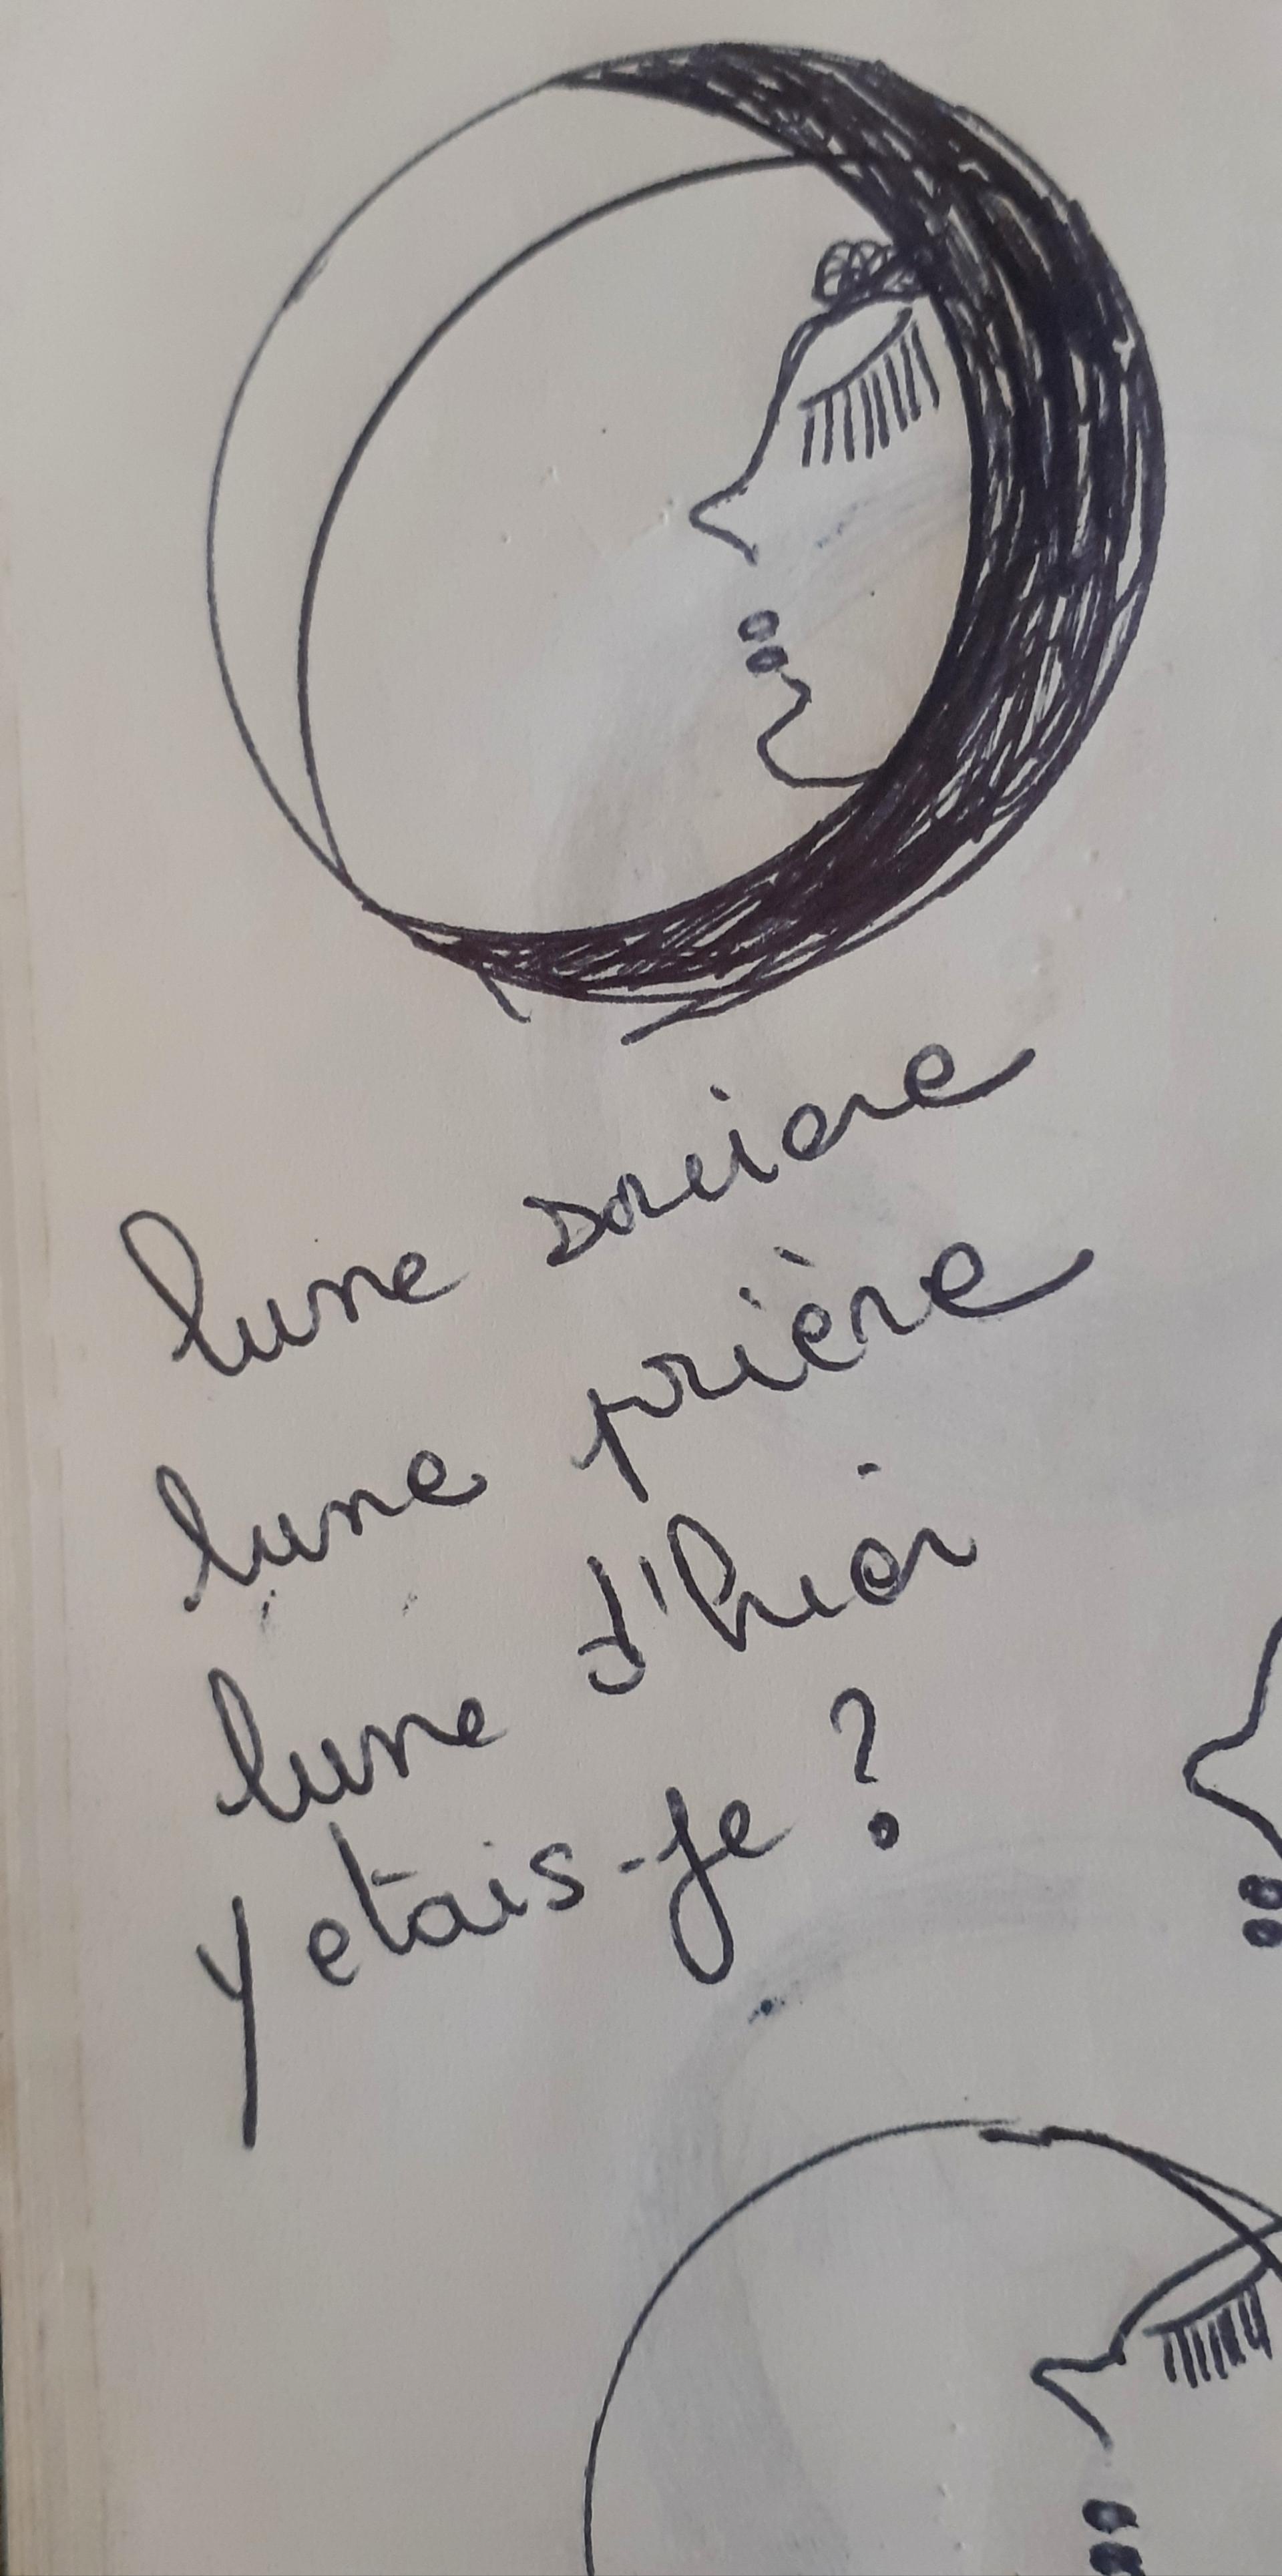 lune sorciere
lune prière
lune d'hier
y etais-je ?